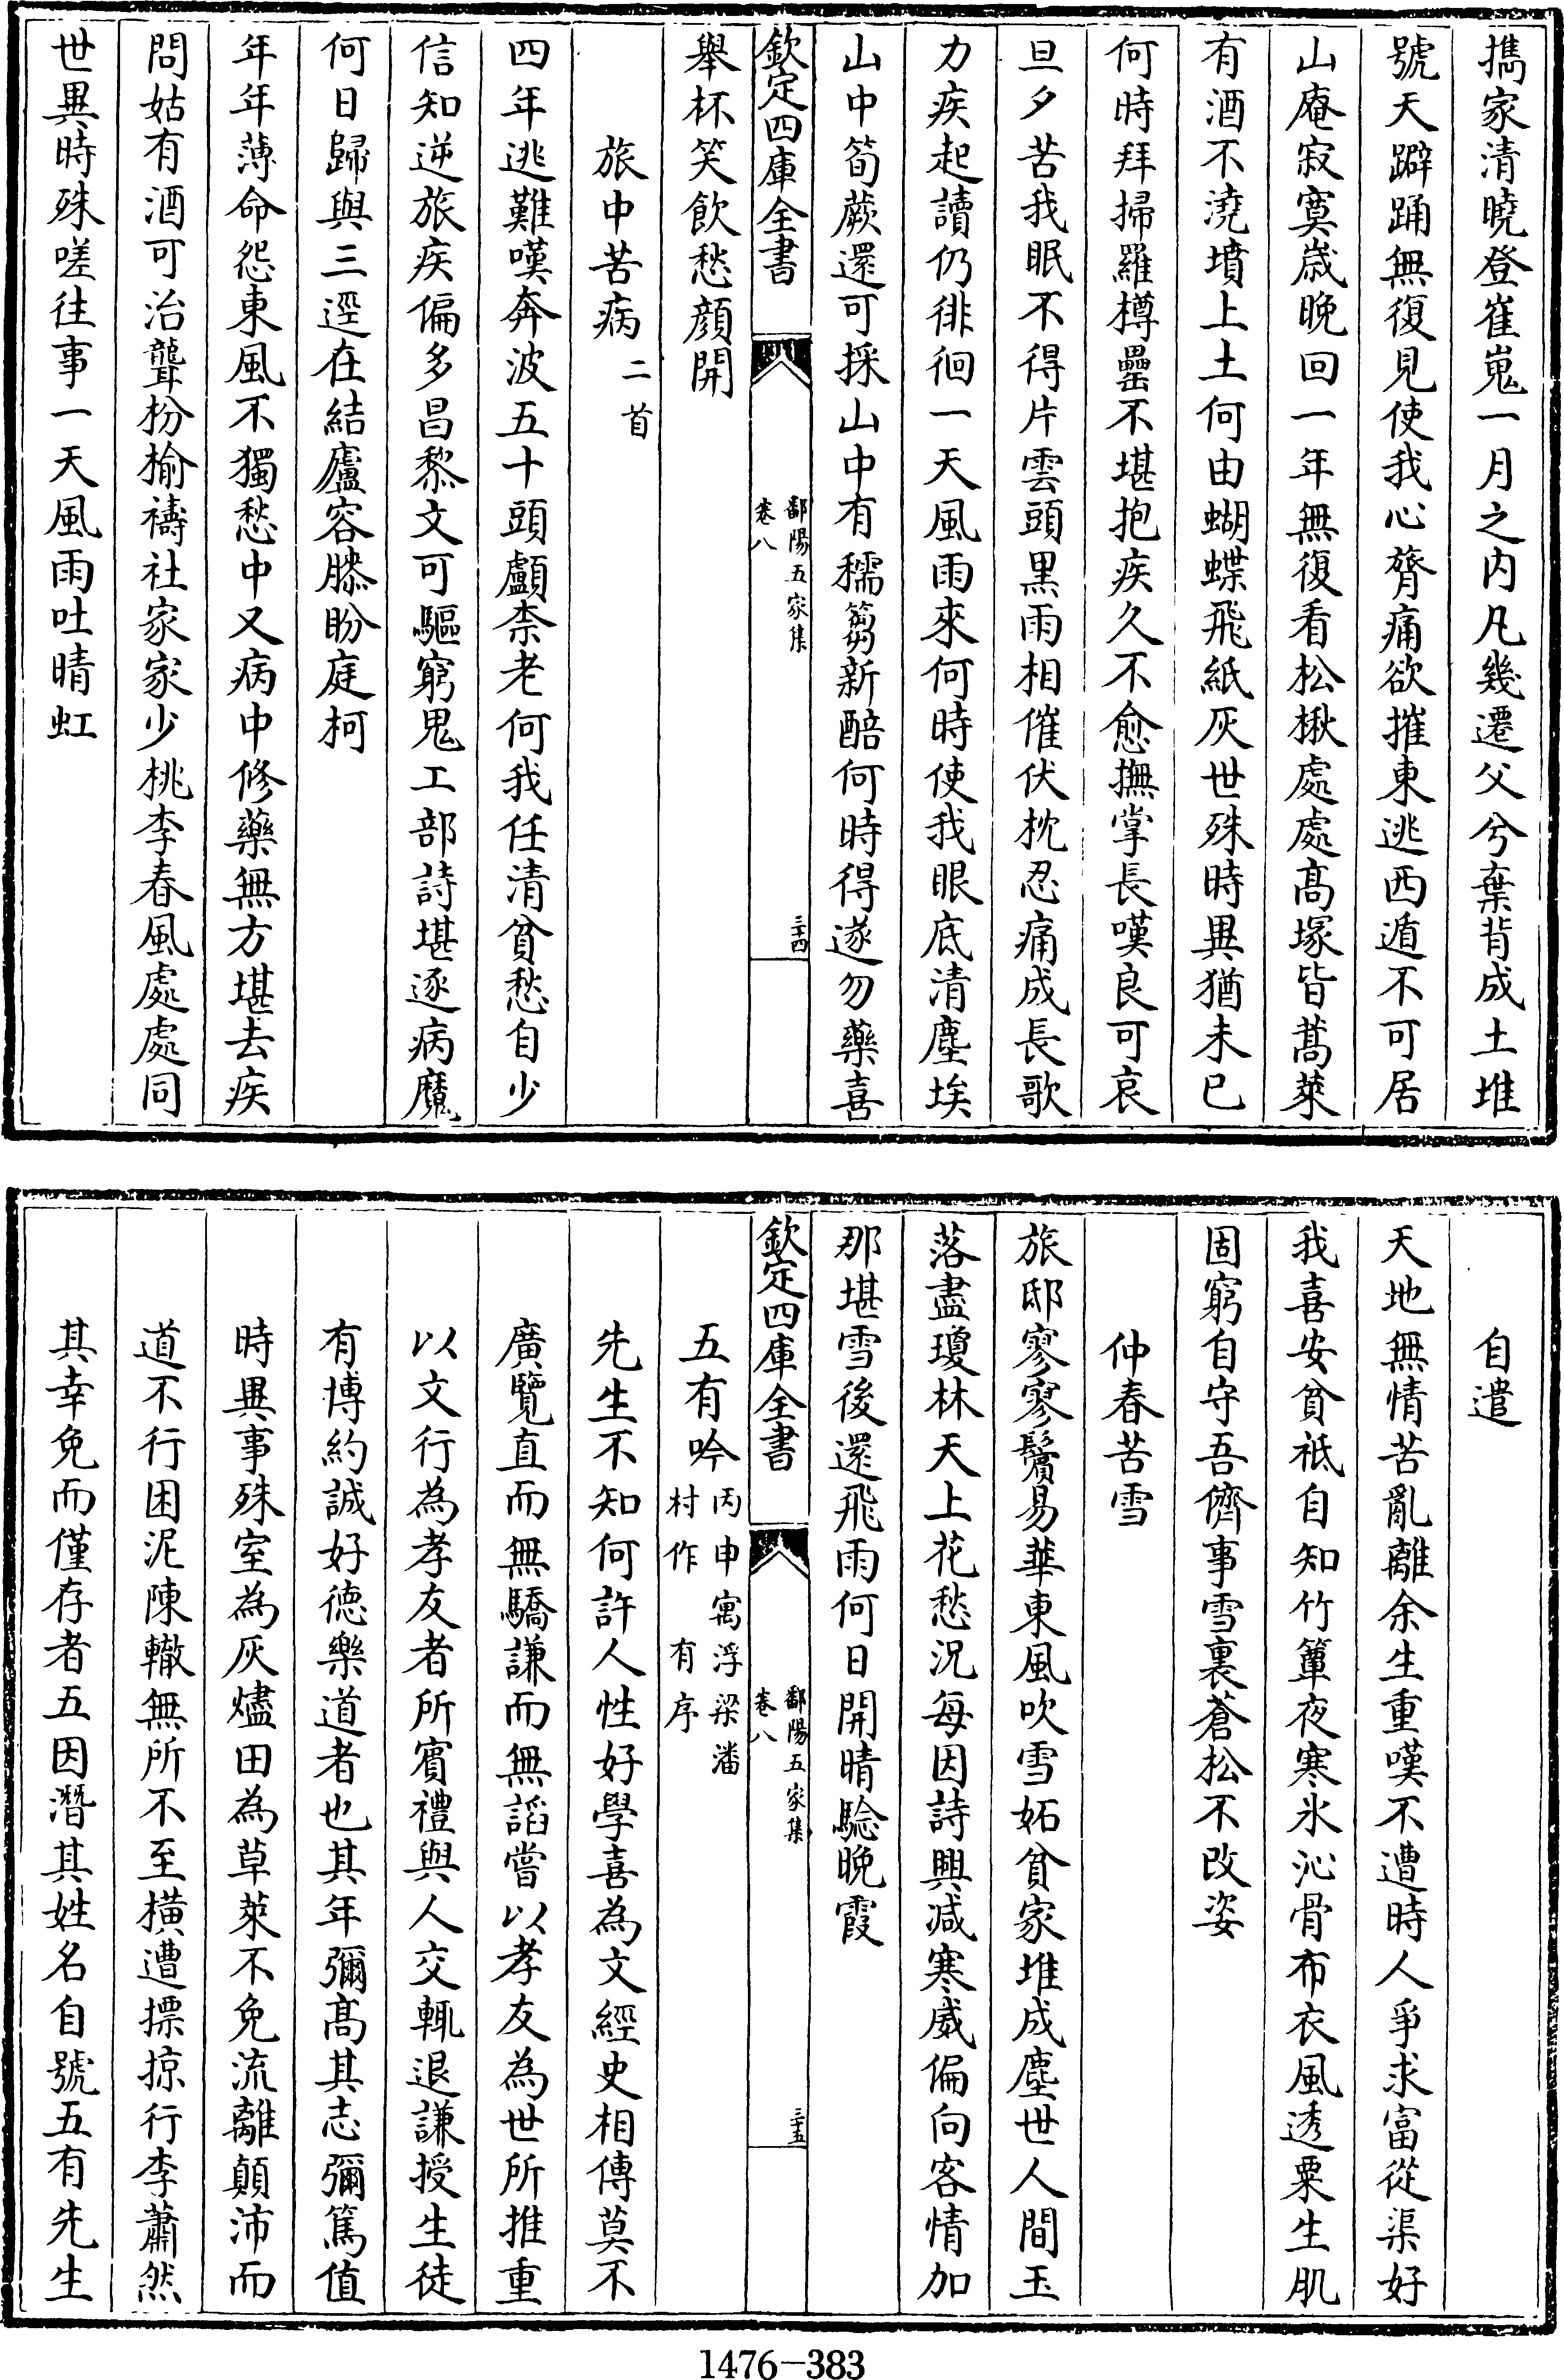 攜家清曉登崔嵬一月之内凡幾遷父兮棄背成土堆
號天躃踊無復見使我心膂痛欲摧東逃西遁不可居
山庵寂寞嵗晚回一年無復看松楸處處髙塚皆蒿萊
有酒不澆墳上土何由蝴蝶飛紙灰世殊時異猶未已
何時拜掃羅樽罍不堪抱疾久不愈撫掌長嘆良可哀
旦夕苦我眠不得片雲頭黒雨相催伏枕忍痛成長歌
力疾起讀仍徘徊一天風雨來何時使我眼底清塵埃
山中筍蕨還可採山中有穤芻新醅何時得遂勿藥喜
欽定四庫全書
鄱陽五家集
卷八
三十四
舉杯笑飲愁顔開
旅中苦病二首
四年逃難嘆奔波五十頭顱柰老何我任清貧愁自少
信知逆旅疾偏多昌黎文可驅窮鬼工部詩堪逐病魔
何日歸與三逕在結廬容膝盼庭柯
年年薄命怨東風不獨愁中又病中修藥無方堪去疾
問姑有酒可治聾枌榆禱社家家少桃李春風處處同
世異時殊嗟往事一天風雨吐晴虹
自遣
天地無情苦亂離余生重嘆不遭時人爭求富從渠好
我喜安貧祗自知竹簞夜寒氷沁骨布衣風透粟生肌
固窮自守吾儕事雪裏蒼松不改姿
仲春苦雪
旅邸寥寥鬢易華東風吹雪妬貧家堆成塵世人間玉
落盡瓊林天上花愁況每因詩興减寒威偏向客情加
那堪雪後還飛雨何日開晴騐晚霞
欽定四庫全書
鄱陽五家集
卷八
三十五
五有吟丙申寓浮梁潘村作有序
先生不知何許人性好學喜為文經史相傳莫不
廣覽直而無驕謙而無謟嘗以孝友為世所推重
以文行為孝友者所賓禮與人交輒退謙授生徒
有博約誠好徳樂道者也其年彌髙其志彌篤值
時異事殊室為灰燼田為草萊不免流離顛沛而
道不行困泥陳轍無所不至横遭摽掠行李蕭然
其幸免而僅存者五因潛其姓名自號五有先生
1476-383